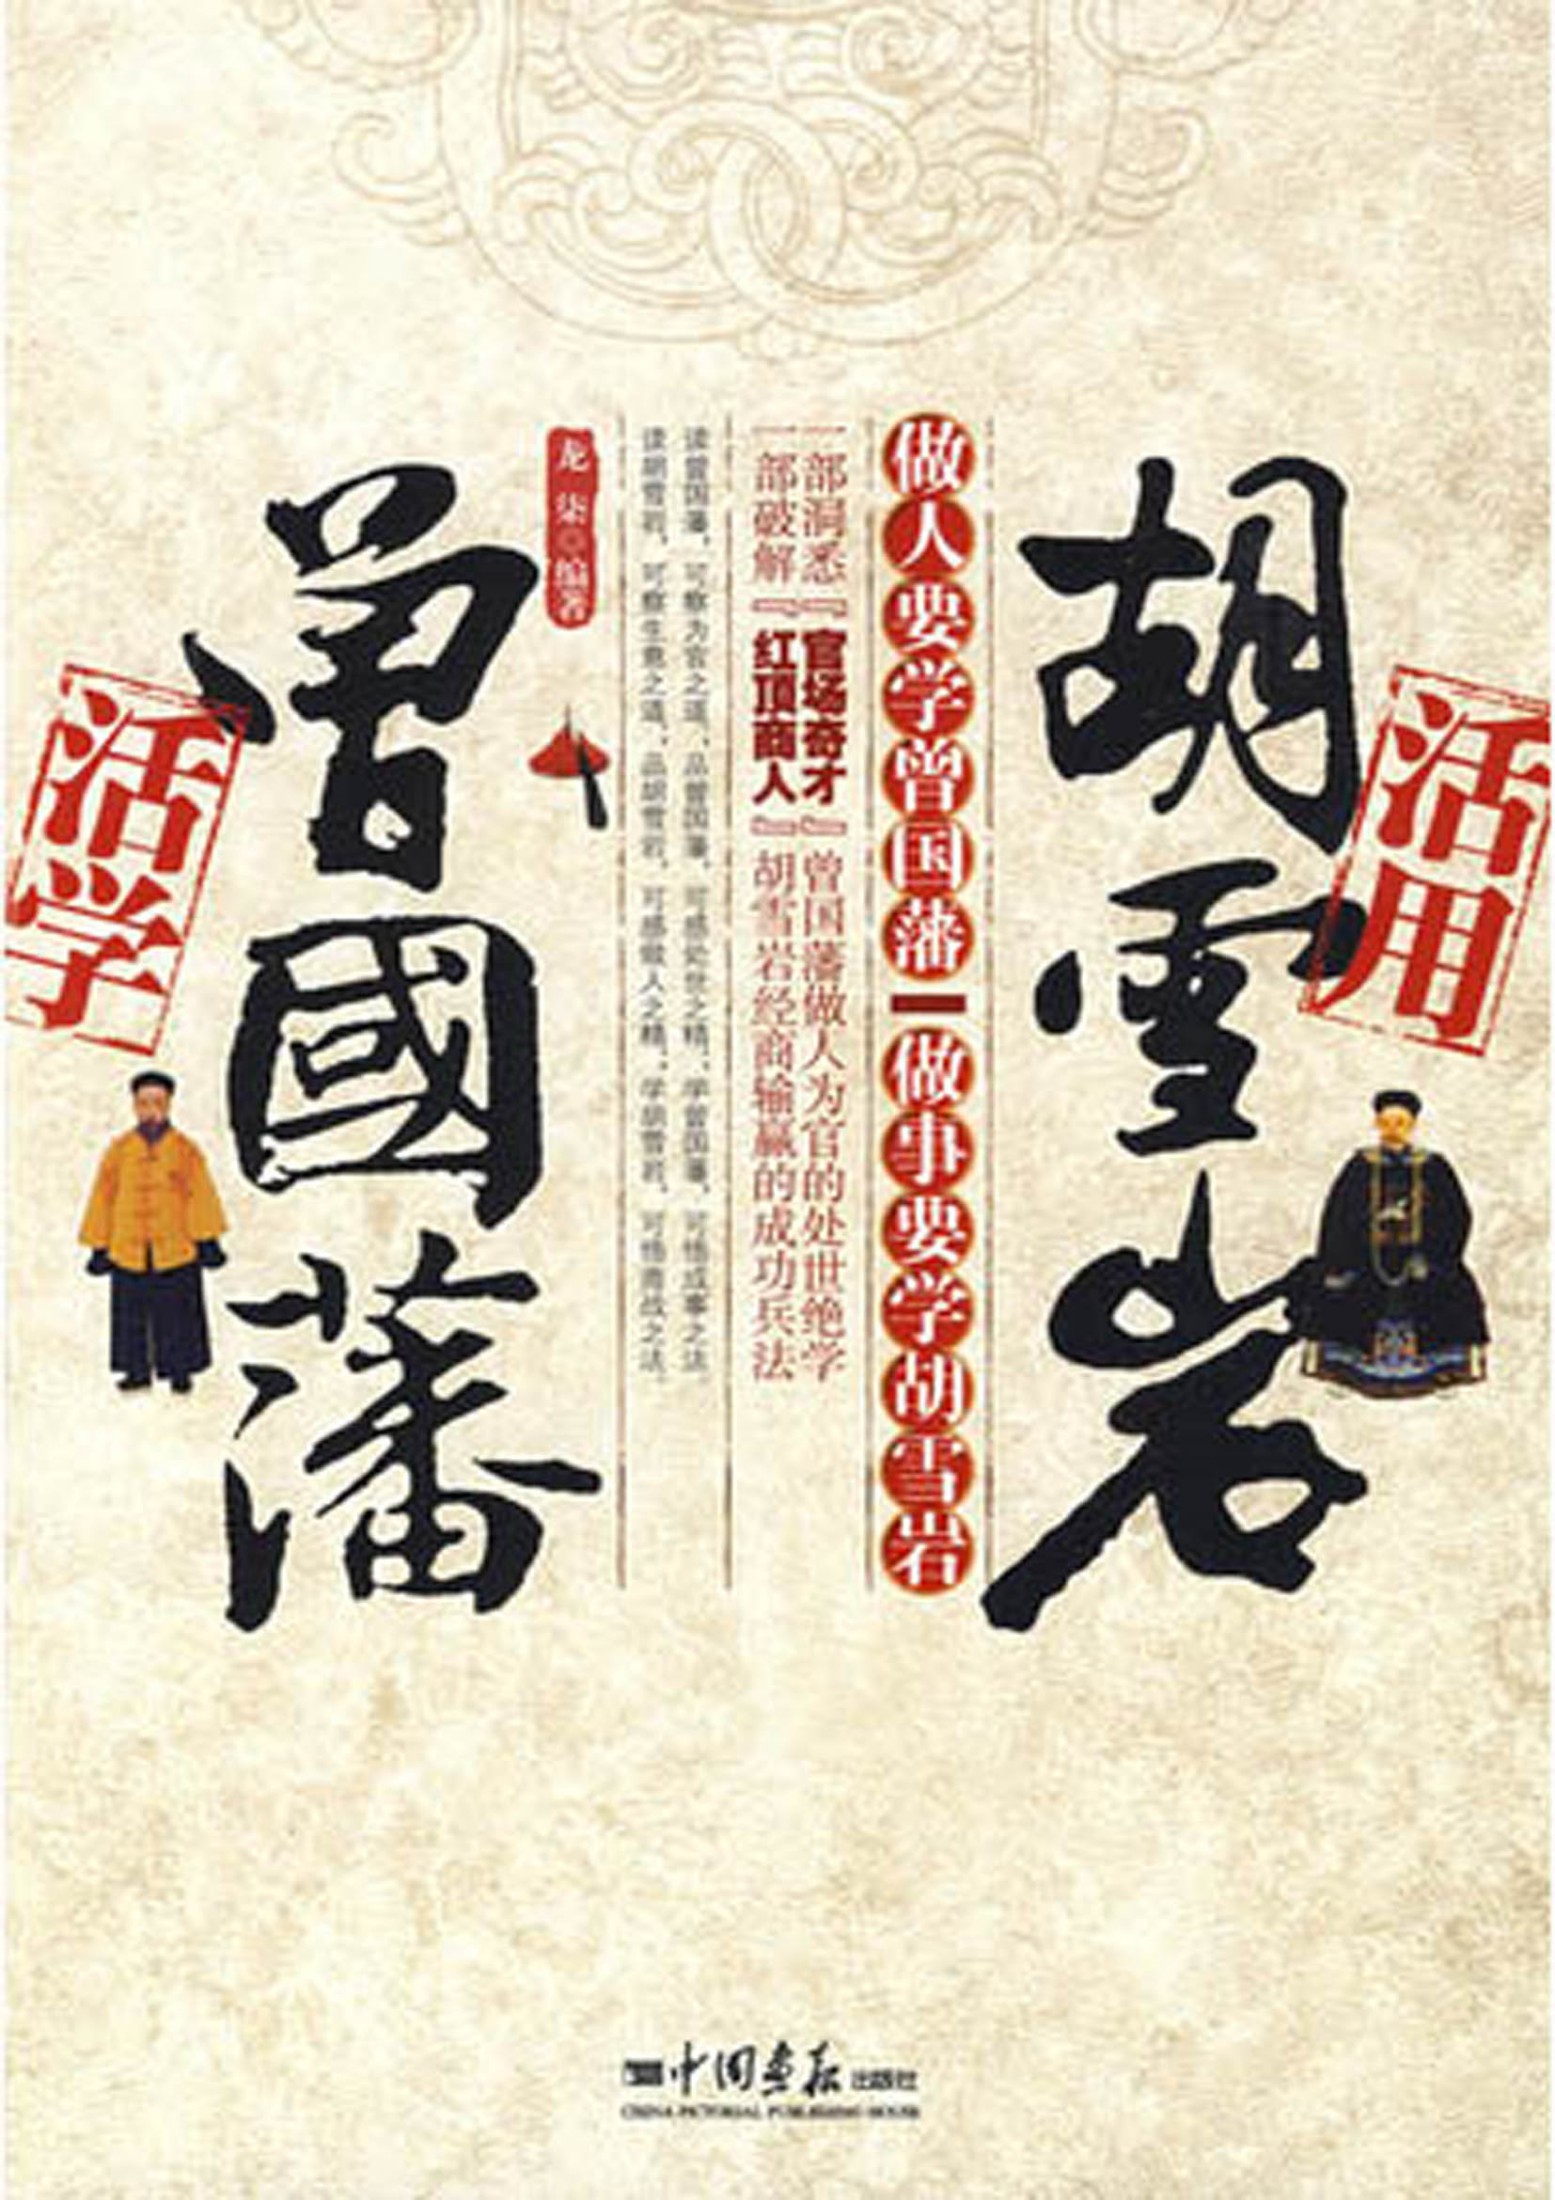 活学
曾國藩
活用
胡雪岩
做人要学曾国藩
做事要学胡雪岩
一部洞悉『官场奇才』曾国藩做人为官的处世绝学
一部破解『红顶商人』胡雪岩经商输赢的成功兵法
读曾国藩，可察为官之道，品曾国藩，可感处世之精，学曾国藩，可悟成事之法。
读胡雪岩，可察生意之道，品胡雪岩，可感做人之精，学胡雪岩，可悟商战之法。
龙柒◎编著
中国画报出版社
CHINA PICTORIAL PUBLISHING HOUSE